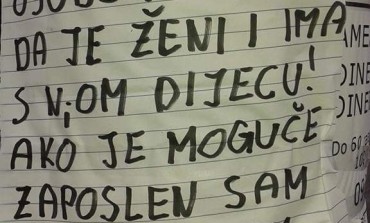 DA JE ŽENI I IMA
S NjOM DIJECU!
AKO JE MOGUČE
ZAPOSLEN SAM
AME
DINE
DINE
DINE
Do 60